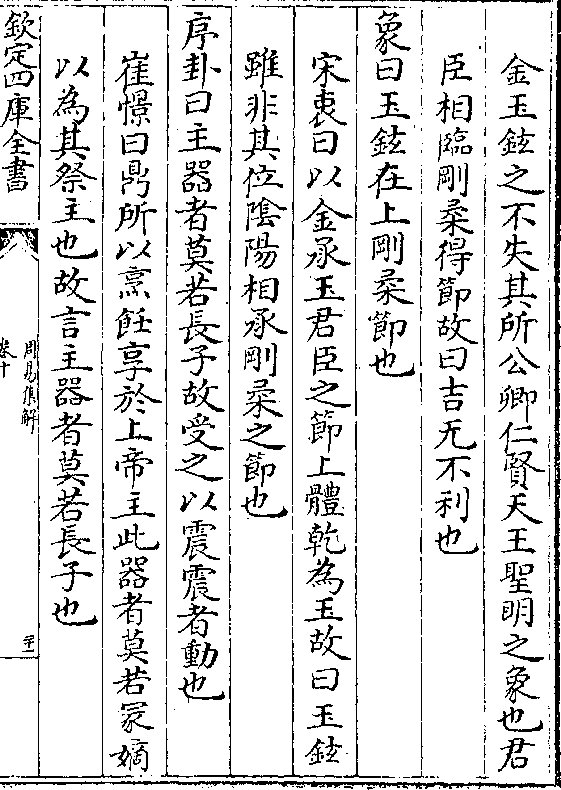 金玉鉉之不失其所公卿仁賢天王聖明之象也君
臣相臨剛柔得節故曰吉无不利也
象曰玉鉉在上剛柔節也
宋衷曰以金承玉君臣之節上體乾為玉故曰玉鉉
雖非其位陰陽相承剛柔之節也
序卦曰主器者莫若長子故受之以震震者動也
崔憬曰鼎所以烹飪享於上帝主此器者莫若冡嫡
以為其祭主也故言主器者莫若長子也
欽定四庫全書
周易集解
卷十
二十一